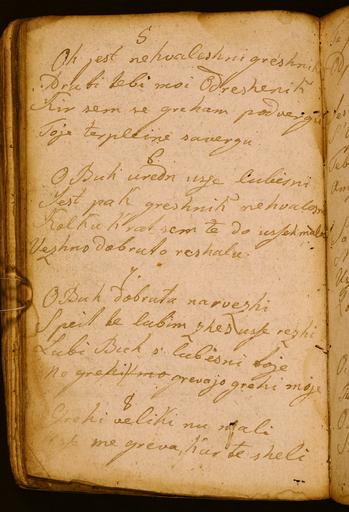 5
Oh jest nehvaleshni greshnik
Drabi tebi moi Odreshenik
Kir sem se greham podvergu
Toje terpleine savergu
6
O Buh uredn usje lubesni
Jest pak greshnik nehvaloshn
Kolku krat sem te do usseh malu
Veshno dobruto reshalu
7.
O Buh dobruta narveshi
Speit te lubim zhes usse rezhi
Lubi Buh s lubesni toje
No grehi grevajo grehi moje
8
Grehi veliki nu mali
me greva, kir te sheli